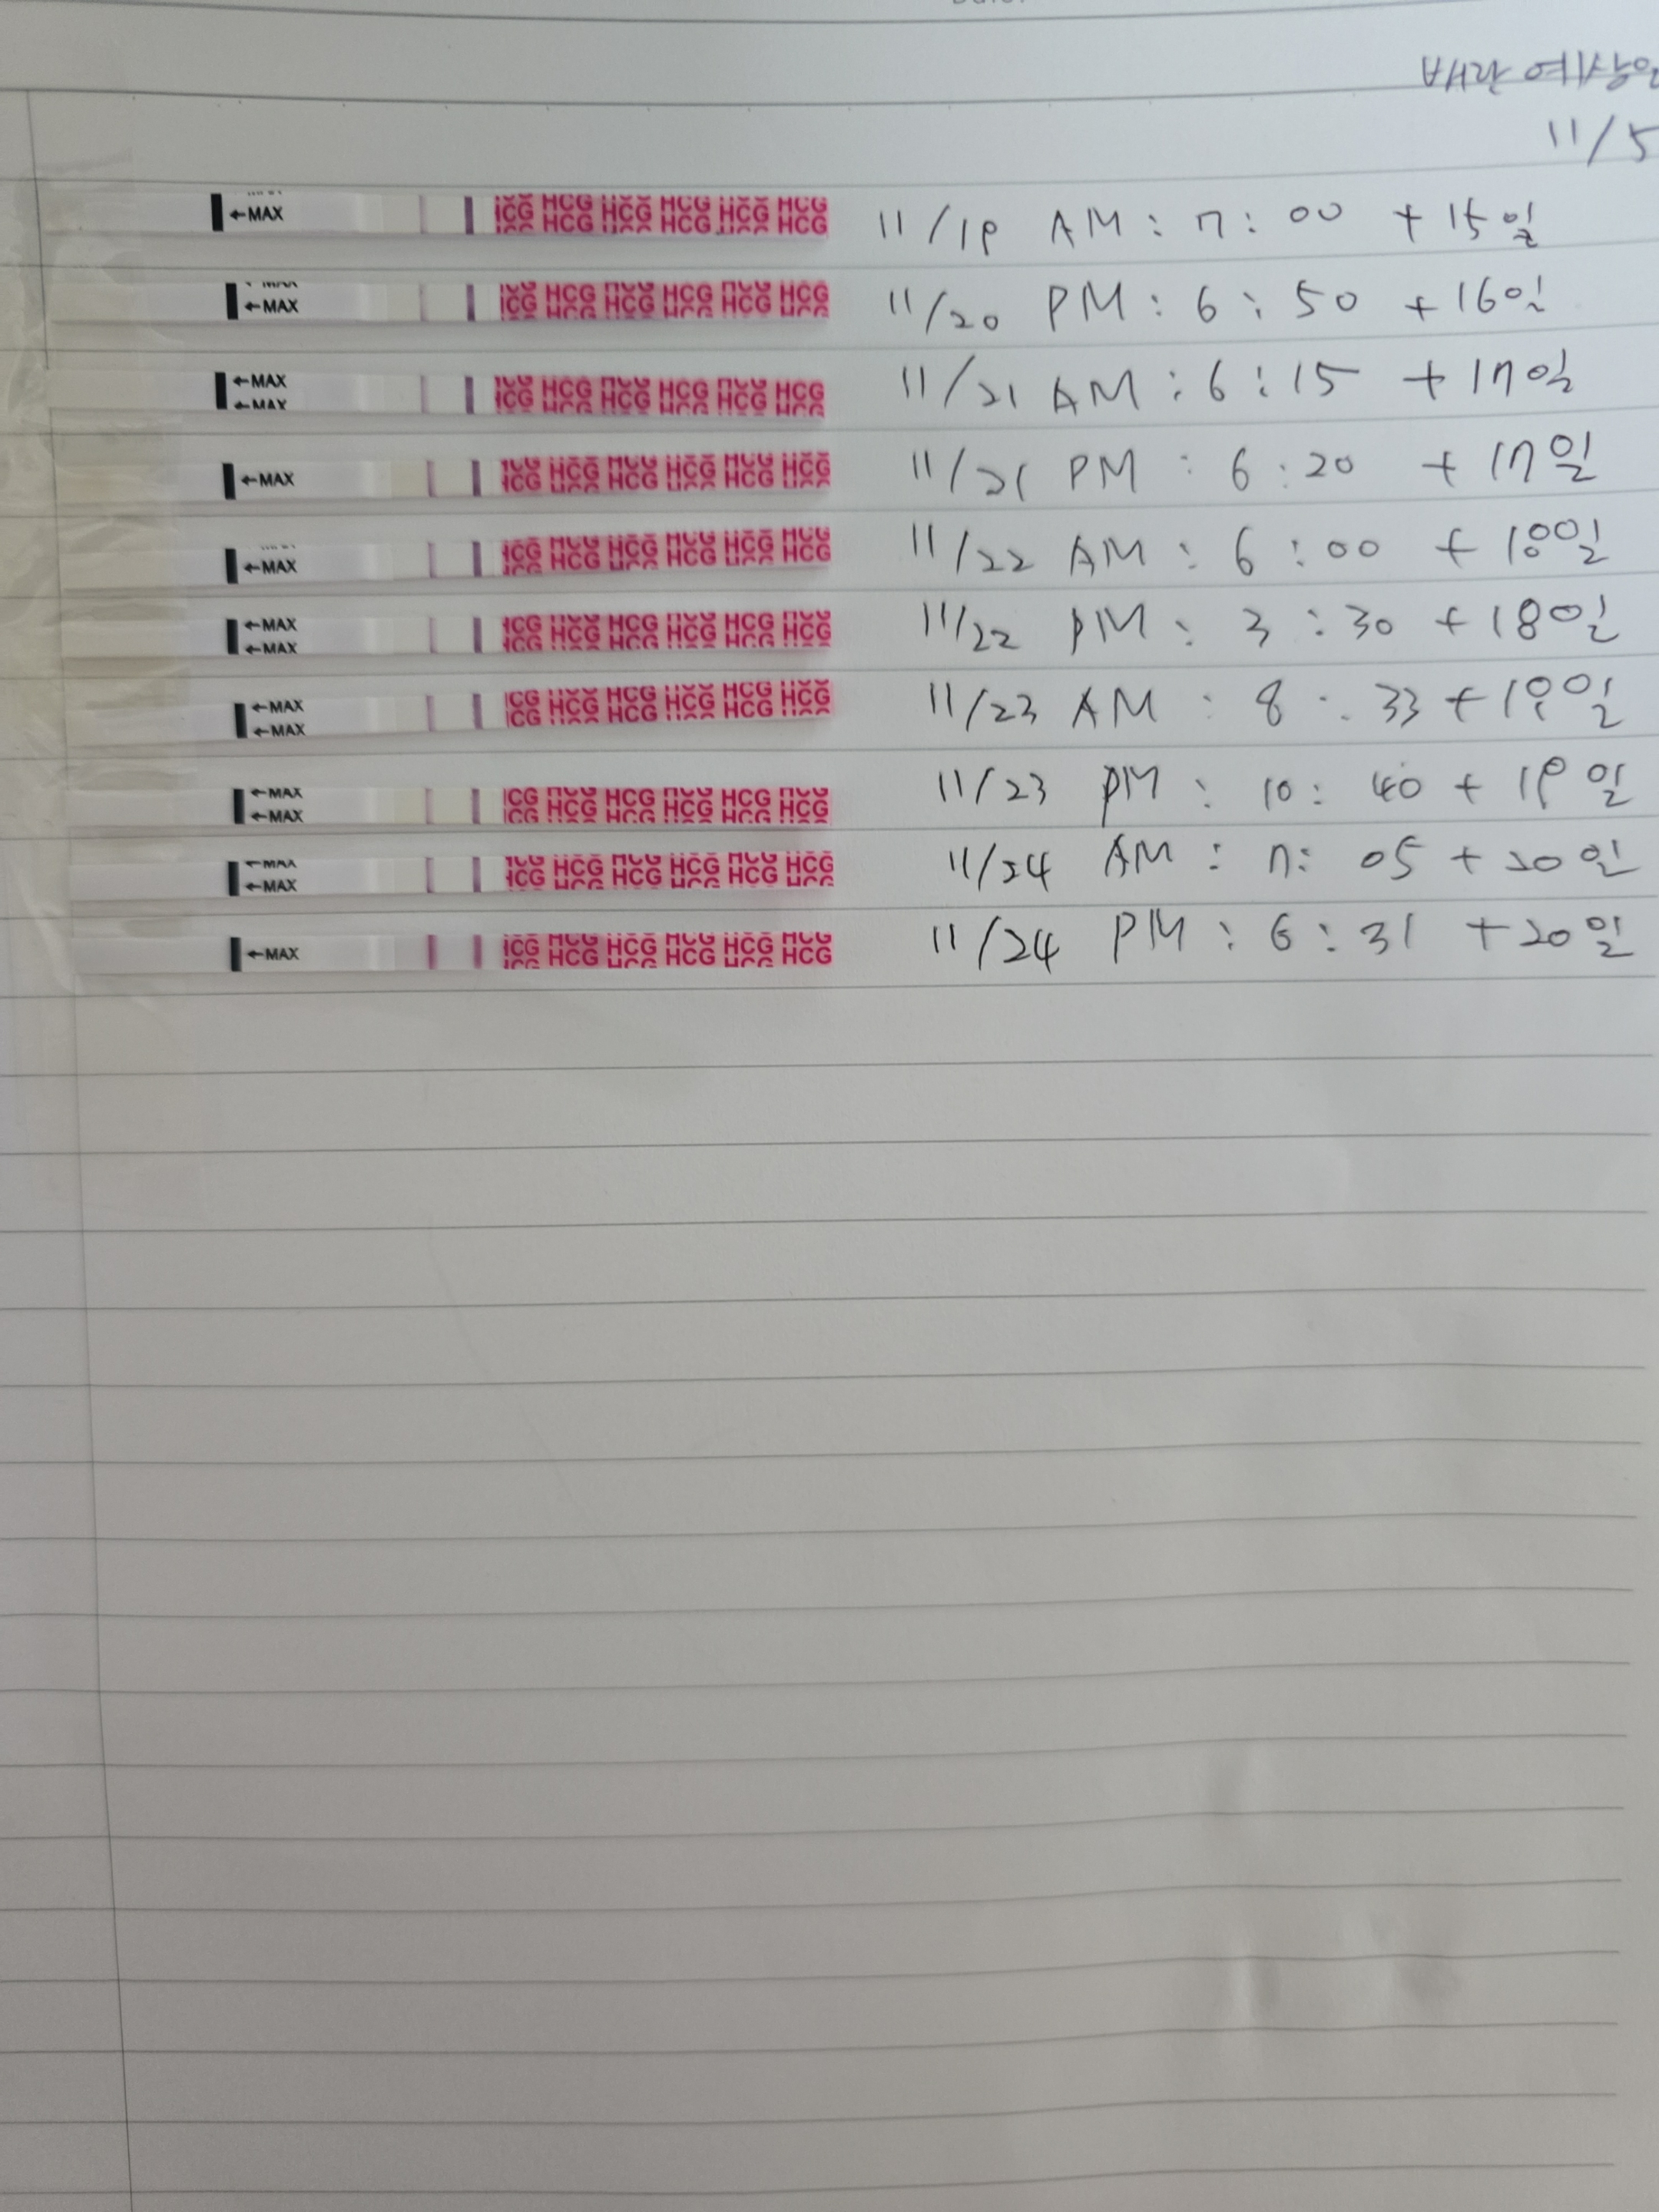 배란 예상일
11/5
←MAX HCG HCG HCG HCG HCG HCG 11/19 AM : 7 : 00 +15일
←MAX HCG HCG HCG HCG HCG HCG 11/20 PM : 6 : 50 +16일
←MAX ←MAX HCG HCG HCG HCG HCG HCG 11/21 AM : 6 : 15 +17일
←MAX HCG HCG HCG HCG HCG HCG 11/21 PM : 6 : 20 +17일
←MAX HCG HCG HCG HCG HCG HCG 11/22 AM : 6 : 00 +18일
←MAX ←MAX HCG HCG HCG HCG HCG HCG 11/22 PM : 3 : 30 +18일
←MAX ←MAX HCG HCG HCG HCG HCG HCG 11/23 AM : 8 : 33 +19일
←MAX ←MAX HCG HCG HCG HCG HCG HCG 11/23 PM : 10 : 40 +19일
←MAX ←MAX HCG HCG HCG HCG HCG HCG 11/24 AM : 7 : 05 +20일
←MAX HCG HCG HCG HCG HCG HCG 11/24 PM : 6 : 31 +20일